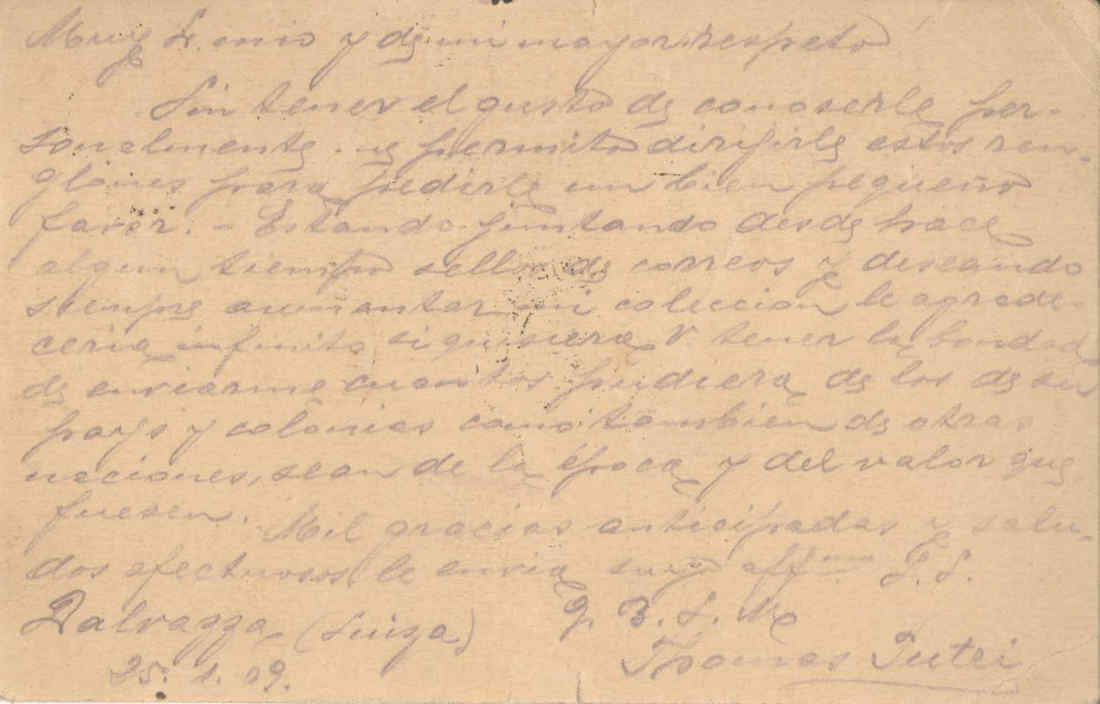 Muy S. mio y de mi mayor respeto
Sin tener el gusto de conoserle per-
sonalmente me permito dirijirle estos ren-
glones para pedirle un bien pequeño
favor. - Estando juntando desde hace
algun tiempo sellos de correos y deseando
siempre aumantar mi coleccion le agrade-
ceria infinito si quisiera V. tener la bondad
de enviarme cuantos pudiera de los de su
pays y colonias como tambien de otras
naciones, sean de la época y del valor que
fuesen. Mil gracias anticipadas y salu-
dos efectuosos le envia su aff.mo S.S.
q. B. S. M.
(Suiza)
25. 1. 09.
Thomas